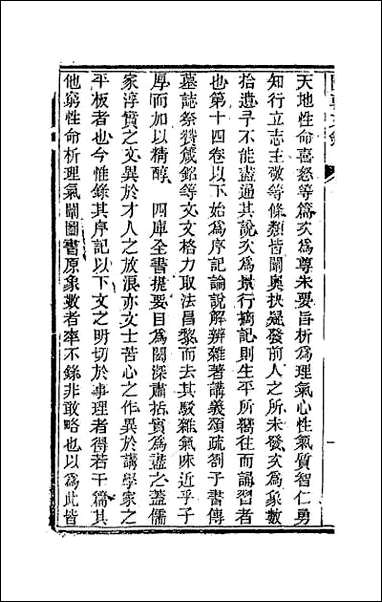 天地性命喜怒等篇次爲尊朱要旨析爲理氣心性氣質智仁勇
知行立志主敬等條類皆闡奧抉疑發前人之所未發次爲象數
拾遺予不能盡通其說次爲景行摘記則生平所嚮往而誦習者
也第十四卷以下始爲序記論說解辨雜著講義頌疏劄子書傳
墓誌祭贊箴銘等文文格力取法昌黎而去其駁雜氣味近乎子
厚而加以精醇　四庫全書提要目爲閎深肅括實爲藎之蓋儒
家淳實之文異於才人之放浪亦文士苦心之作異於講學家之
平板者也今惟錄其序記以下文之明切於事理者得若干篇其
他窮性命析理氣闡圖書原象數者率不錄非敢略也以爲此皆